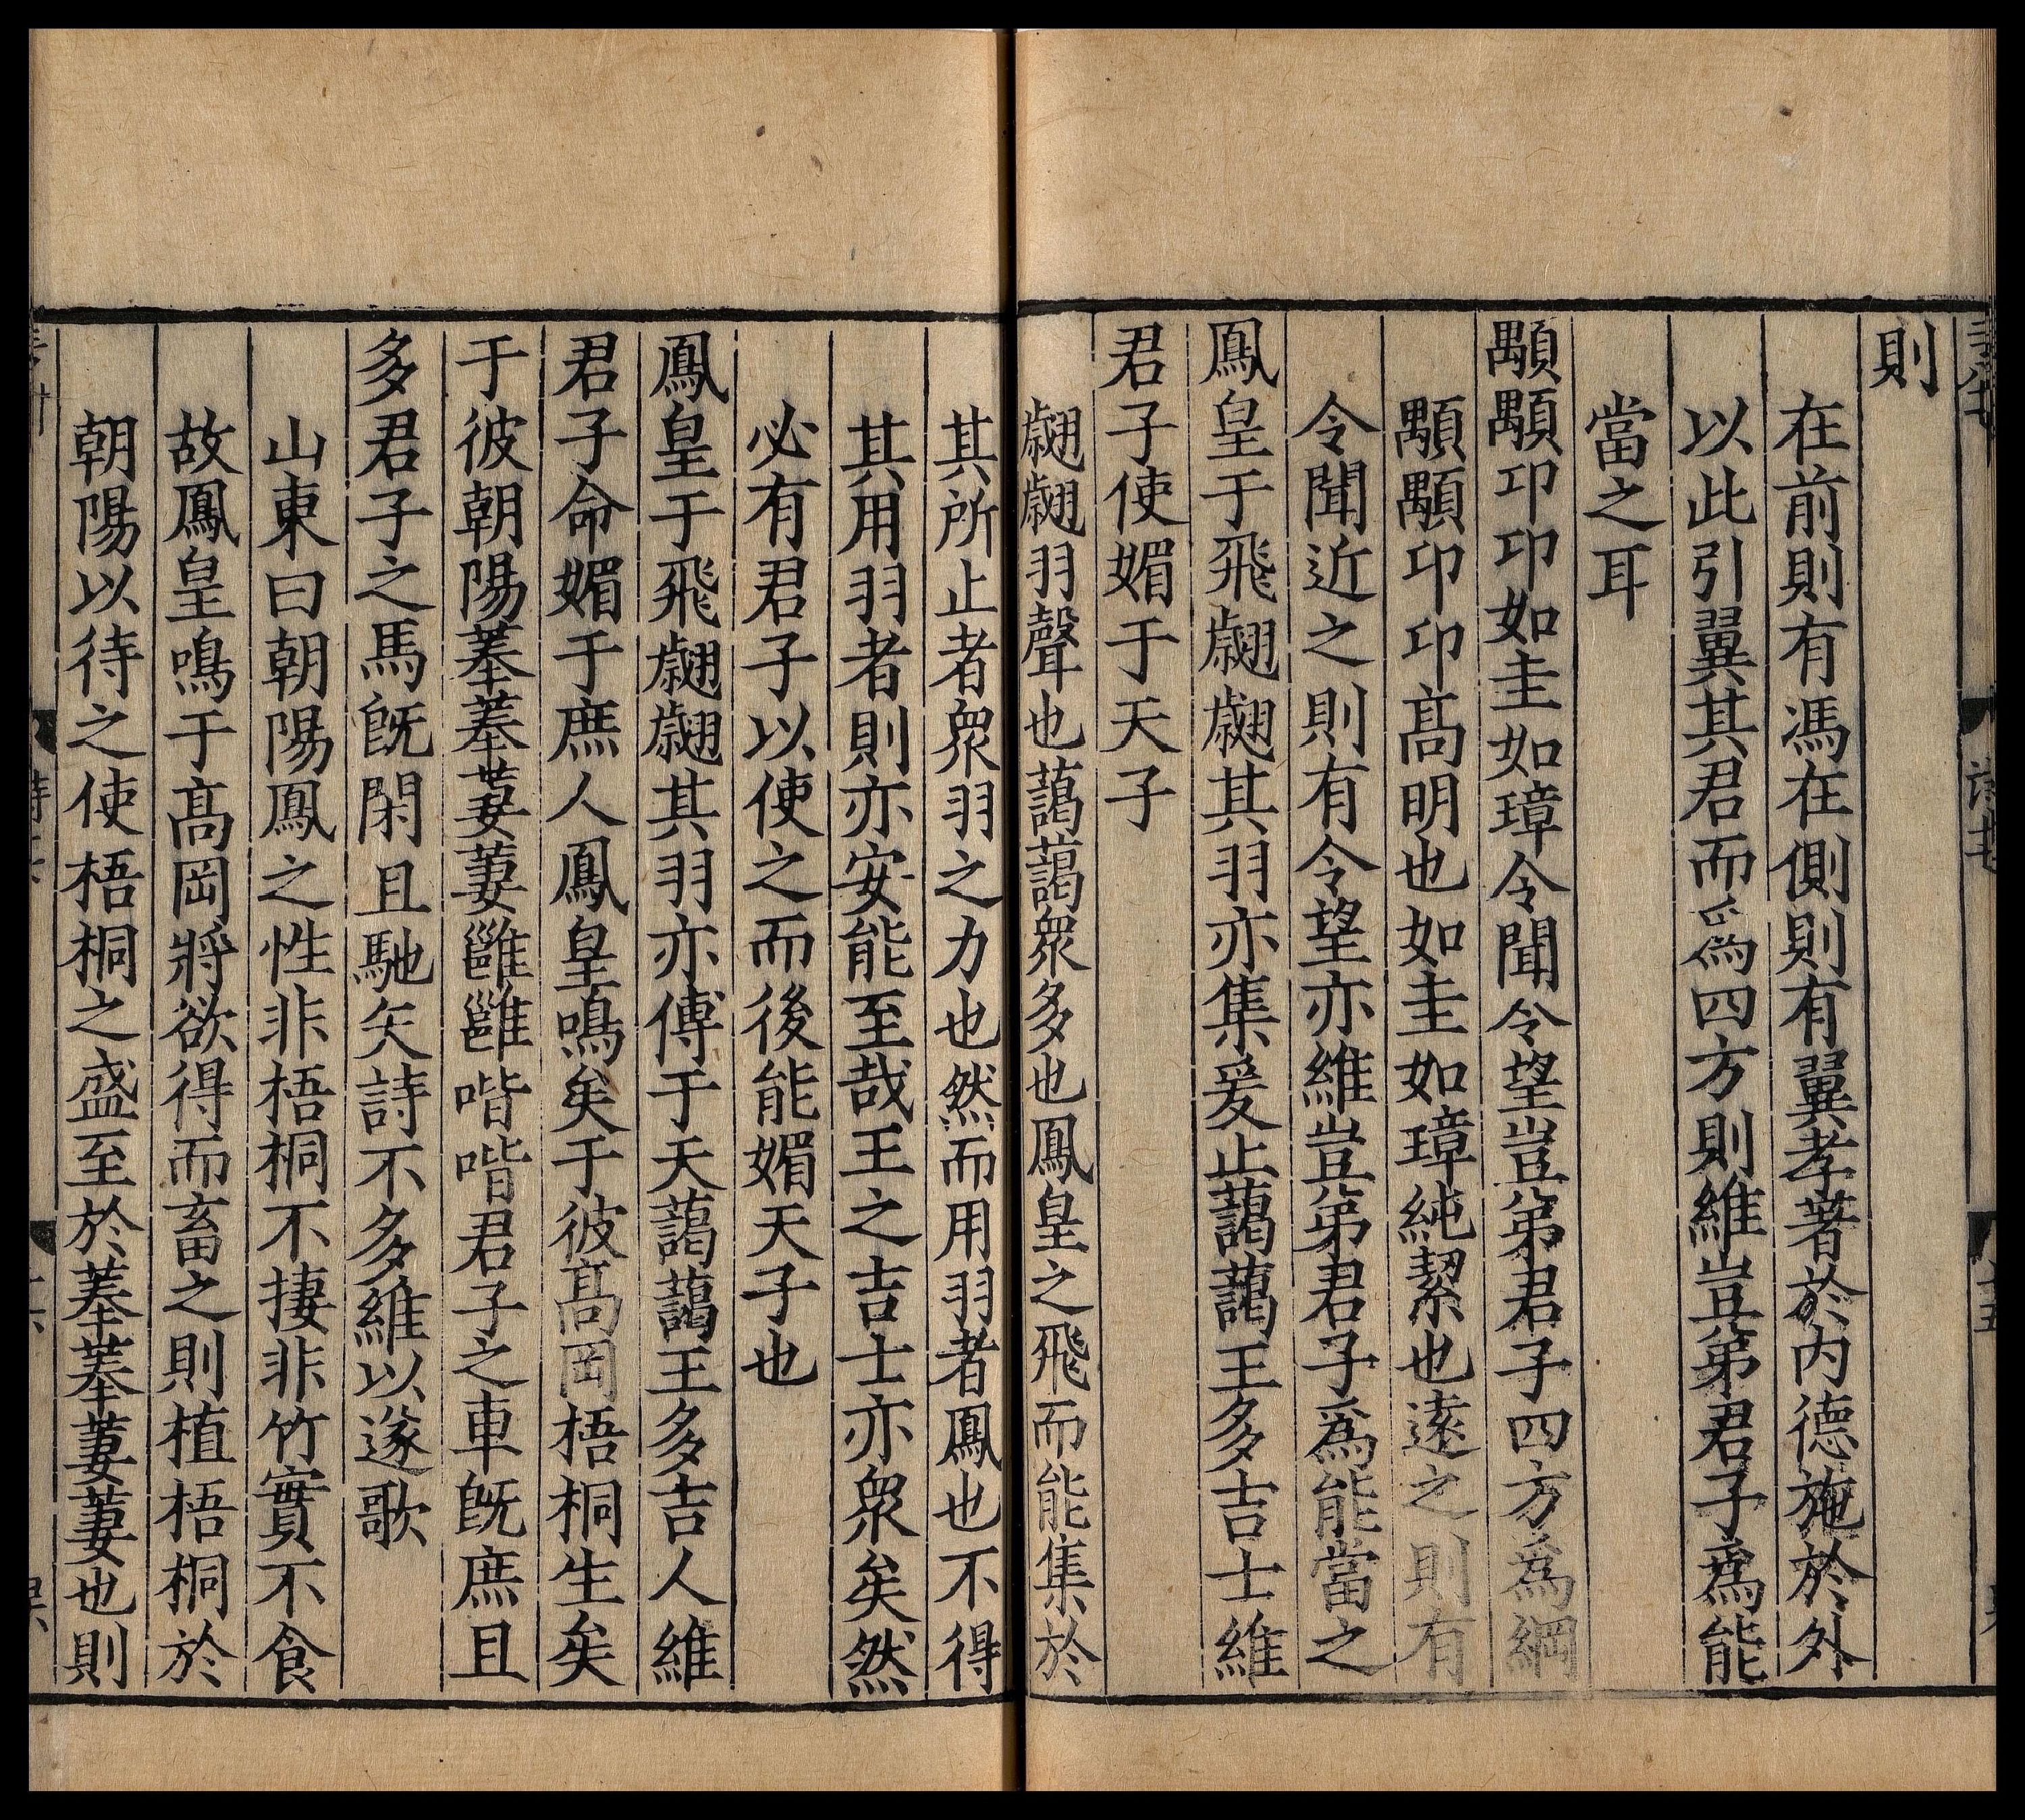 則
在前則有馮在側則有翼孝著於内德施於外
以此引翼其君而爲四方則維豈弟君子爲能
當之耳
顒顒卬卬如圭如璋令聞令望豈弟君子四方為綱
顒顒卬卬髙明也如圭如璋純絜也逺之則有
令聞近之則有令望亦維豈弟君子爲能當之
鳳皇于飛翽翽其羽亦集爰止藹藹王多吉士維
君子使媚于天子
翽翽羽聲也藹藹衆多也鳳皇之飛而能集於
其所止者衆羽之力也然而用羽者鳳也不得
其用羽者則亦安能至哉王之吉士亦衆矣然
必有君子以使之而後能媚天子也
鳳皇于飛翽翽其羽亦傅于天藹藹王多吉人維
君子命媚于庶人鳳皇鳴矣于彼髙岡梧桐生矣
于彼朝陽菶菶萋萋雝雝喈喈君子之車旣庶且
多君子之馬旣閑且馳矢詩不多維以遂歌
山東曰朝陽鳳之性非梧桐不捿非竹實不食
故鳳皇鳴于髙岡將欲得而畜之則植梧桐於
朝陽以待之使梧桐之盛至於菶菶萋萋也則